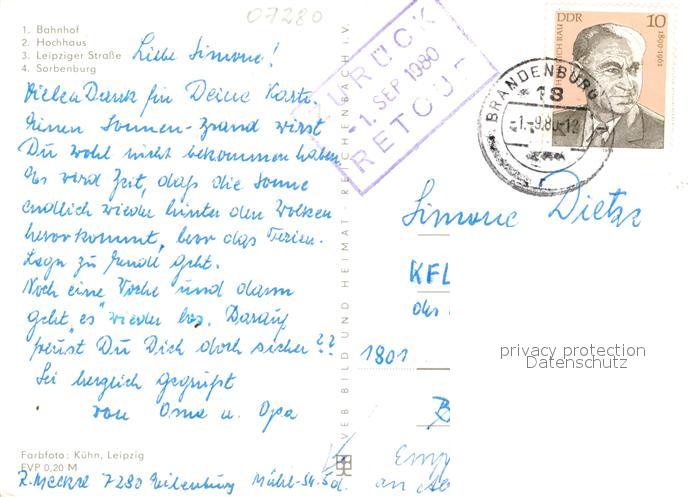 07280
1. Bahnhof
2. Hochhaus
3. Leipziger Straße
4. Sorbenburg
Liebe Simone!
Vielen Dank für Deine Karte.
Einen Sonnen-Brand wirst
Du wohl nicht bekommen haben.
Es wird Zeit, daß die Sonne
endlich wieder hinter den Wolken
hervorkommt, bevor das Ferien-
Lager zu Ende geht.
Noch eine Woche und dann
geht "es" wieder los. Darauf
freust Du Dich doch sicher??
Sei herzlich gegrüßt
von Oma u. Opa
Farbfoto: Kühn, Leipzig
EVP 0,20 M
7280 Eilenburg
VEB BILD UND HEIMAT · REICHENBACH I. V.
ZURÜCK
-1. SEP 1980
RETOUR
DDR 10
1899-1961
BRANDENBURG
18
-1.-9.80-12
Simone
KFL
des
1801
B
an
privacy protection
Datenschutz